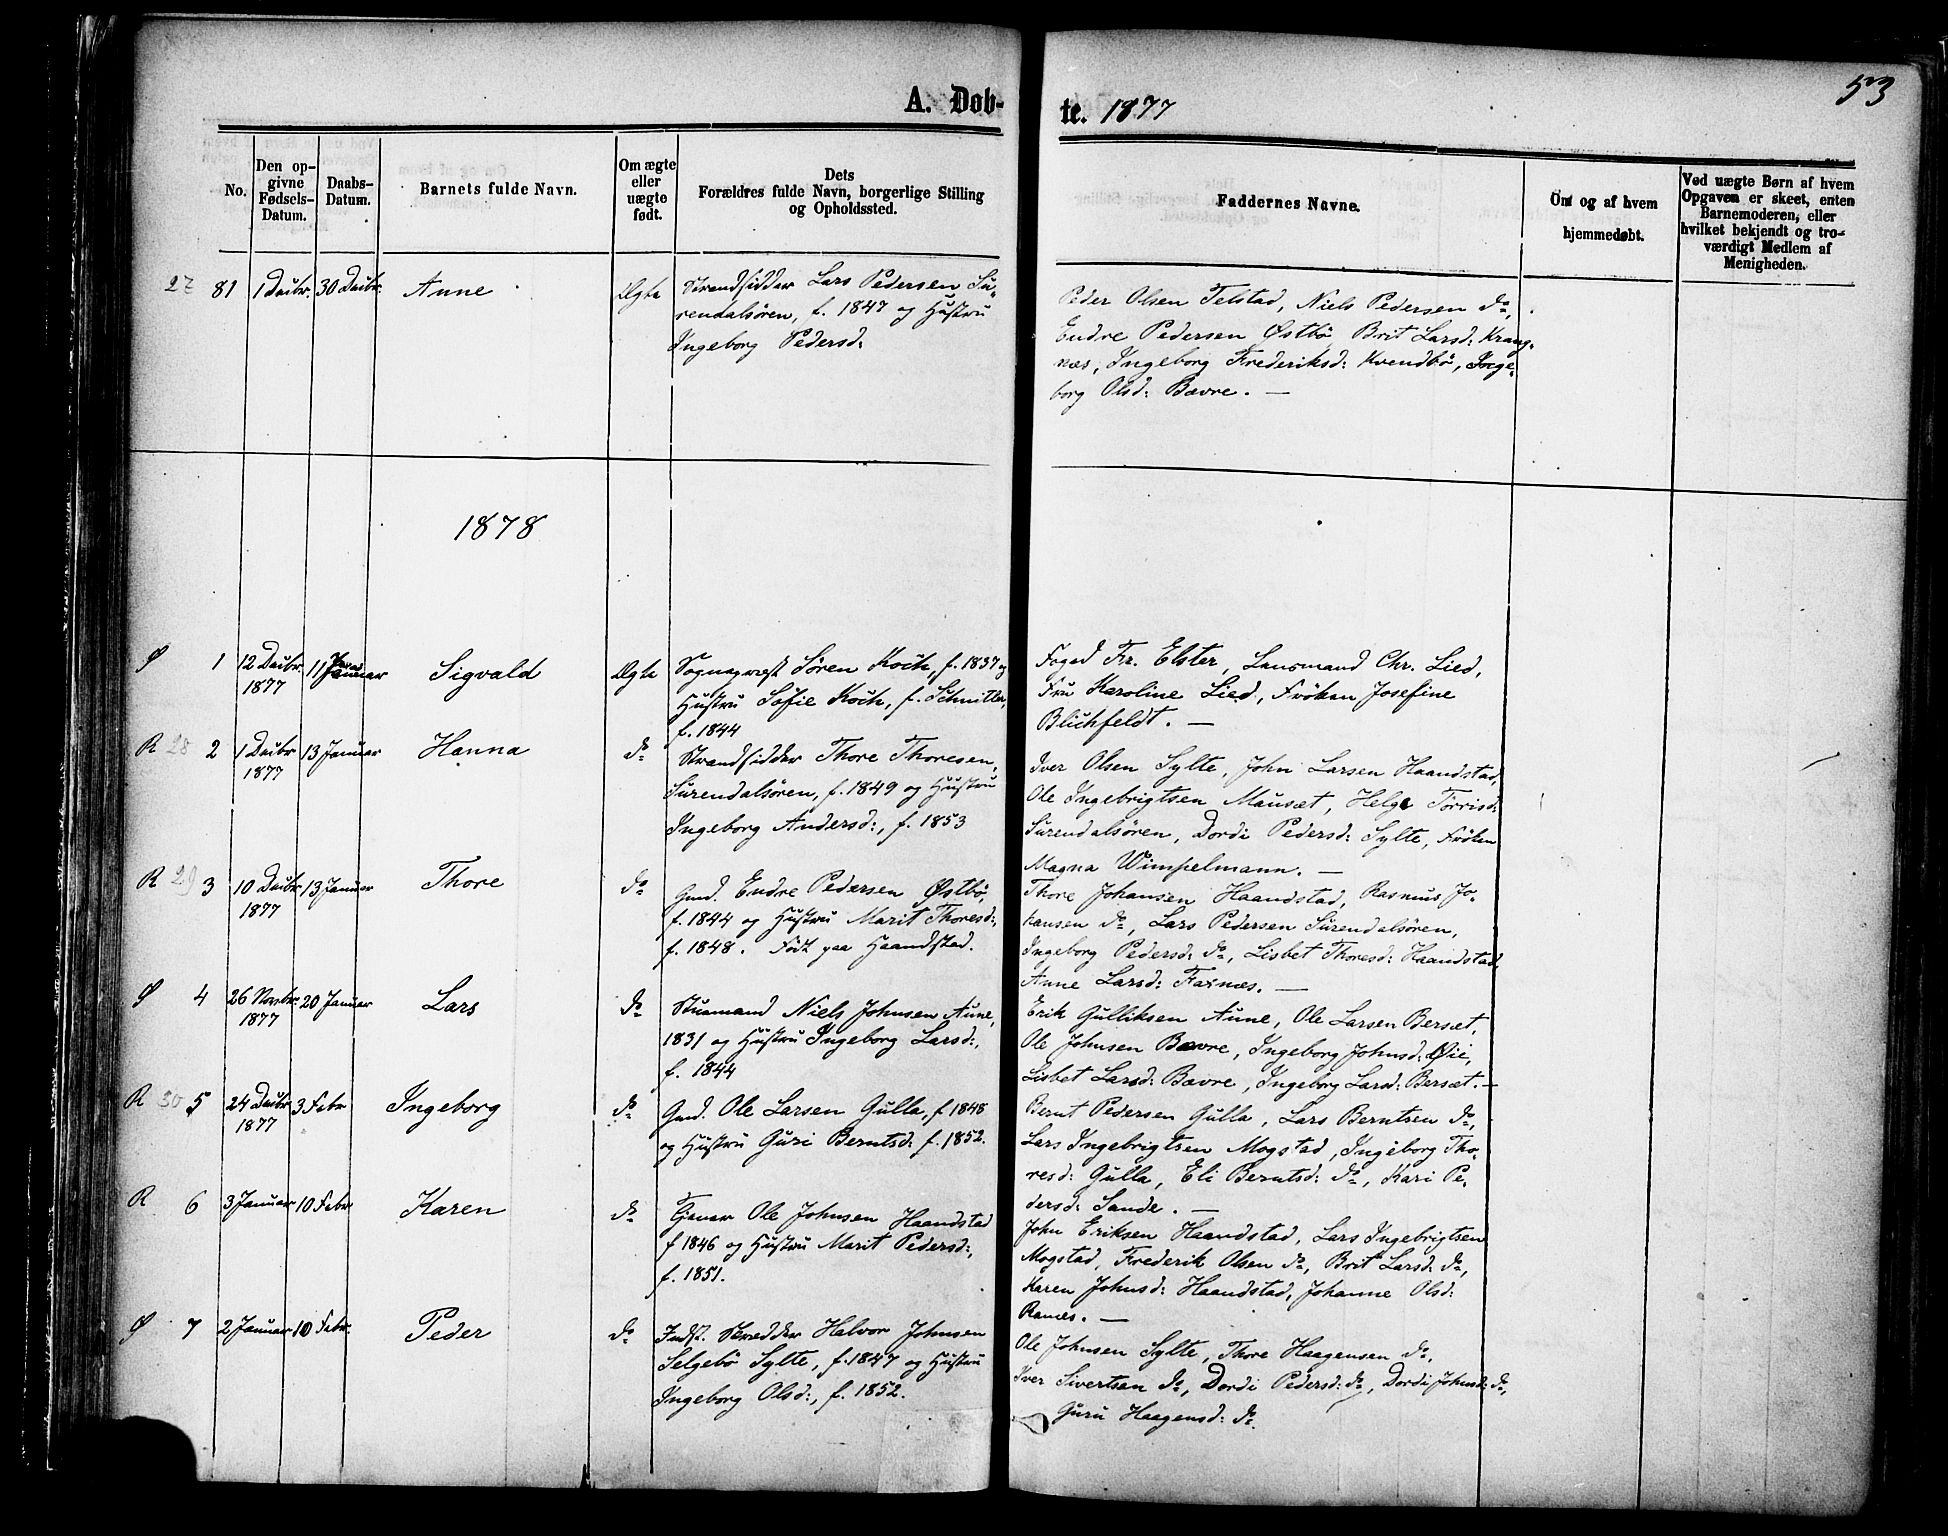 53
A. Døb-
te. 1877
No.
Den op-
givne
Fødsels-
Datum.
Daabs-
Datum.
Barnets fulde Navn.
Om ægte
eller
uægte
født.
Dets
Forældres fulde Navn, borgerlige Stilling
og Opholdssted.
Faddernes Navne.
Om og af hvem
hjemmedøbt.
Ved uægte Børn af hvem
Opgaven er skeet, enten
Barnemoderen, eller
hvilket bekjendt og tro-
værdigt Medlem af
Menigheden.
27 81 1 Decbr. 30 Decbr. Anne Ægte
Strandsidder Lars Pedersen Su-
rendalsören, f. 1847 og Hustru
Ingeborg Pedersd:
Peder Olsen Telstad, Niels Pedersen do,
Endre Pedersen Østbö, Brit Larsd: Krang-
næs, Ingeborg Frederiksd: Kvendbö, Inge-
borg Olsd: Bævre. —
1878
Ø 1 12 Decbr. 11 Januar Sigvald Ægte
1877
Sognaprest Sören Koch, f. 1837 og
Hustru Sofie Koch, f. Schnitler,
f. 1844
Foged Fr. Elster, Lensmand Chr. Lied,
Fru Karoline Lied, Fröken Josefine
Blichfeldt. —
R 28 2 1 Decbr 13 Januar Hanna do
1877
Strandsidder Thore Thoresen,
Surendalsören, f. 1849 og Hustru
Ingeborg Andersd:, f. 1853
Iver Olsen Sylte, John Larsen Haandstad,
Ole Ingebrigtsen Mausæt, Helge Törrisd:
Surendalsören, Dordi Pedersd: Sylte, Fröken
Magna Wimpelmann. —
R 29 3 10 Decbr 13 Januar Thore do
1877
Gmd. Endre Pedersen Østbö,
f. 1844 og Hustru Marit Thoresd:,
f. 1848. Födt paa Haandstad.
Thore Johansen Haandstad, Rasmus Jo-
hansen do, Lars Pedersen Surendalsören,
Ingeborg Pedersd: do, Lisbet Thoresd: Haandstad,
Anne Larsd: Farnæs. —
Ø 4 26 Novbr. 20 Januar Lars do
1877
Stuemand Niels Johnsen Aune,
1831 og Hustru Ingeborg Larsd:,
f. 1844
Erik Gulliksen Aune, Ole Larsen Bersæt,
Ole Johnsen Bævre, Ingeborg Johnsd: Øie,
Lisbet Larsd: Bævre, Ingeborg Larsd: Bersæt. —
R 30 5 24 Decbr 3 Febr Ingeborg do
1877
Gmd. Ole Larsen Gulla, f 1848
og Hustru Guri Berntsd: f. 1852.
Bernt Pedersen Gulla, Lars Berntsen do,
Lars Ingebrigtsen Mogstad, Ingeborg Tho-
resd: Gulla, Eli Berntsd: do, Kari Pe-
dersd: Sande. —
R 6 3 Januar 10 Febr Karen do
Tjener Ole Johnsen Haandstad
f 1846 og Hustru Marit Pedersd:,
f. 1851.
John Eriksen Haandstad, Lars Ingebrigtsen
Mogstad, Frederik Olsen do, Brit Larsd: do,
Karen Johnsd: Haandstad, Johanne Olsd:
Ranes. —
Ø 7 2 Januar 10 Febr. Peder do
Indst. Skredder Halvor Johnsen
Selgebö Sylte, f. 1847 og Hustru
Ingeborg Olsd:, f. 1852.
Ole Johnsen Sylte, Thore Haagensen do,
Iver Sivertsen do, Dordi Pedersd: do, Dordi Johnsd: do,
Guru Haagensd: do